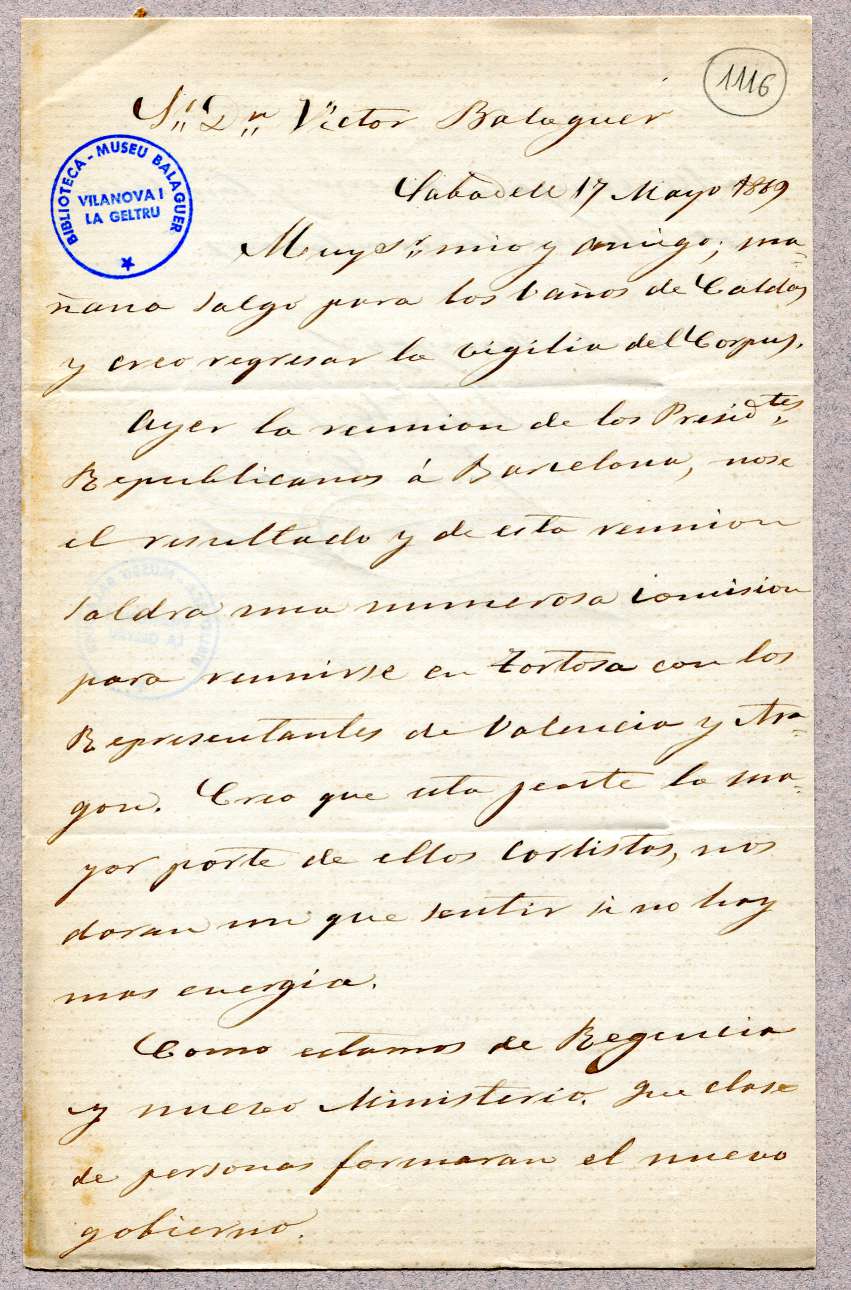 1116
Sr. Dn. Victor Balaguer
BIBLIOTECA - MUSEU BALAGUER
VILANOVA I
LA GELTRU
Sabadell 17 Mayo 1869
Muy Sr. mio y amigo; ma-
ñana salgo para los baños de Caldas
y creo regresar la vigilia del Corpus.
Ayer la reunion de los Presidtes.
Republicanos á Barcelona, nose
el resultado y de esta reunion
saldra una numerosa comision
para reunirse en Tortosa con los
Representantes de Valencia y Ara-
gon. Creo que esta jente la ma-
yor parte de ellos Carlistas, nos
daran un que sentir si no hay
mas energia.
Como estamos de Regencia
y nuevo Ministerio. que clase
de personas formaran el nuevo
gobierno.